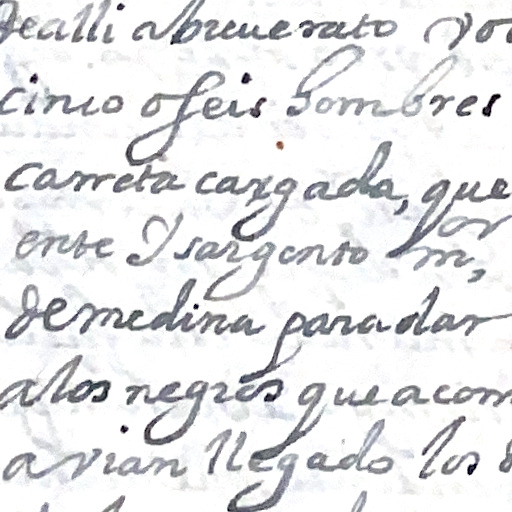 dealli abreue rato vo
cinco o seis hombres
carreta cargada, que
ente I sargento mor,
de medina para dar
a los negros que acom
avian llegado los d